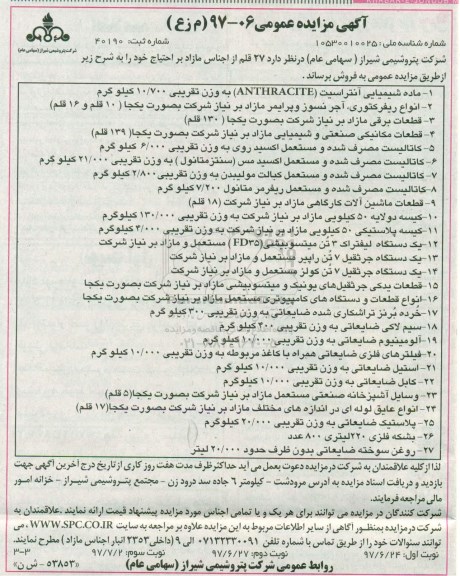 آگهی مزایده عمومی ۰۶-۹۷ (م ز غ)
شرکت پتروشیمی شیراز (سهامی عام)
شماره شناسه ملی: ۱۰۵۳۰۰۱۰۰۲۵ شماره ثبت: ۴۰۱۹۰
شرکت پتروشیمی شیراز ( سهامی عام) درنظر دارد ۲۷ قلم از اجناس مازاد بر احتیاج خود را به شرح زیر
ازطریق مزایده عمومی به فروش برساند .
۱- ماده شیمیایی آنتراسیت (ANTHRACITE) به وزن تقریبی ۱۰/۷۰۰ کیلو گرم
۲- انواع ریفرکتوری، آجر نسوز وپرایمر مازاد بر نیاز شرکت بصورت یکجا ( ۱۰ قلم و ۱۶ قلم)
۳- قطعات برقی مازاد بر نیاز شرکت بصورت یکجا ( ۱۳۰ قلم)
۴- قطعات مکانیکی صنعتی و شیمیایی مازاد بر نیاز شرکت بصورت یکجا( ۱۳۹ قلم)
۵- کاتالیست مصرف شده و مستعمل اکسید روی به وزن تقریبی ۶/۰۰۰ کیلو گرم
۶- کاتالیست مصرف شده و مستعمل اکسید مس (سنتزمتانول ) به وزن تقریبی ۲۱/۰۰۰ کیلو گرم
۷- کاتالیست مصرف شده و مستعمل کبالت مولیبدن به وزن تقریبی۲/۸۰۰ کیلو گرم
۸- کاتالیست مصرف شده و مستعمل ریفرمر متانول ۷/۲۰۰ کیلو گرم
۹- قطعات ماشین آلات کارگاهی مازاد بر نیاز شرکت (۱۸ قلم)
۱۰- کیسه دولایه ۵۰ کیلویی مازاد بر نیاز شرکت به وزن تقریبی ۱۳۰/۰۰۰ کیلوگرم
۱۱- کیسه پلاستیکی ۵۰ کیلویی مازاد بر نیاز شرکت به وزن تقریبی ۴/۰۰۰ کیلوگرم
۱۲- یک دستگاه لیفتراک ۳ تُن میتسوبیشی (FD۳۵) مستعمل و مازاد بر نیاز شرکت
۱۳- یک دستگاه جرثقیل ۷ تُن راپیر مستعمل و مازاد بر نیاز شرکت
۱۴- یک دستگاه جرثقیل ۷ تن کولز مستعمل و مازاد بر نیاز شرکت
۱۵- قطعات یدکی جرثقیل‌های یونیک و میتسوبیشی مازاد بر نیاز شرکت بصورت یکجا
۱۶- انواع قطعات و دستگاه های کامپیوتری مستعمل مازاد بر نیاز شرکت بصورت یکجا
۱۷- خرده بُرنز تراشکاری شده ضایعاتی به وزن تقریبی ۳۰۰ کیلو گرم
۱۸- سیم لاکی ضایعاتی به وزن تقریبی ۴۰۰ کیلو گرم
۱۹- آلومینیوم ضایعاتی به وزن تقریبی ۱۰/۰۰۰ کیلو گرم
۲۰- فیلترهای فلزی ضایعاتی همراه با کاغذ مربوطه به وزن تقریبی ۱۰/۰۰۰ کیلو گرم
۲۱- استیل ضایعاتی به وزن تقریبی ۱۰/۰۰۰ کیلو گرم
۲۲- کابل ضایعاتی به وزن تقریبی ۱۰/۰۰۰ کیلوگرم
۲۳- وسایل آشپزخانه صنعتی مستعمل مازاد بر نیاز شرکت بصورت یکجا(۵ قلم)
۲۴- انواع عایق لوله ای در اندازه های مختلف مازاد بر نیاز شرکت بصورت یکجا(۱۷ قلم)
۲۵- پلاستیک ضایعاتی به وزن تقریبی ۲۰/۰۰۰ کیلوگرم
۲۶- بشکه فلزی ۲۲۰لیتری ۸۰۰ عدد
۲۷- روغن سوخته ضایعاتی بدون ظرف حدود ۲۰/۰۰۰ لیتر
لذا از کلیه علاقمندان به شرکت درمزایده دعوت بعمل می آید حداکثر ظرف مدت هفت روز کاری از تاریخ درج آخرین آگهی جهت
بازدید و دریافت اسناد مزایده به آدرس مرودشت - کیلومتر ۶ جاده سد درود زن - مجتمع پتروشیمی شیراز - خزانه امور
مالی مراجعه فرمایند.
شرکت کنندگان در مزایده می توانند برای هر یک و یا تمامی اجناس مورد مزایده پیشنهاد قیمت ارائه نمایند. علاقمندان به
شرکت درمزایده بمنظور آگاهی از سایر اطلاعات مربوط به این مزایده علاوه بر مراجعه به سایت WWW.SPC.CO.IR، می
توانند سئوالات خود را از طریق تماس با شماره تلفن ۰۷۱۳۲۳۳۰۰۹۱ الی ۹ (داخلی۲۳۵۳ انبار اجناس مازاد) مطرح نمایند.
نوبت اول: ۹۷/۶/۲۴ نوبت دوم: ۹۷/۶/۲۷ نوبت سوم: ۹۷/۷/۲ ۳-۳
روابط عمومی شرکت پتروشیمی شیراز (سهامی عام) «۵۳۸۵۳- ش ن»